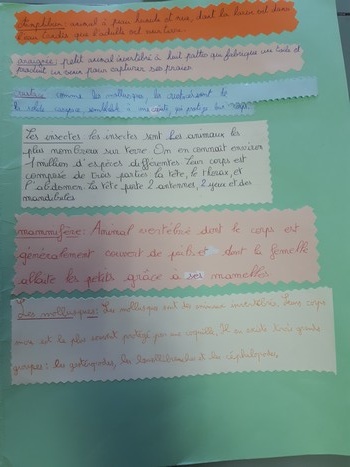 Amphibien: animal à peau humide et nue, dont la larve est dans
l'eau tandis que l'adulte est
araignée: petit animal invertébré à huit pattes qui fabrique une toile et
produit un venin pour capturer ses proies
comme les mollusques, les
le solide
Les insectes les insectes sont les animaux les
plus nombreux sur Terre On en connaît environ
1 million d'espèces différentes Leur corps est
composée de trois parties la tête, le thorax, et
l'abdomen La tête porte 2 antennes, 2 yeux et des
mandibules
mammifère: Animal vertébré dont le corps est
généralement couvert de poils et dont la femelle
allaite les petits grâce à ses mamelles
Les mollusques: Les mollusques sont des animaux invertébrés. Leurs corps
mou est le plus souvent protégé par une coquille. Il en existe trois grands
groupes: les gastéropodes, les lamellibranches et les céphalopodes.